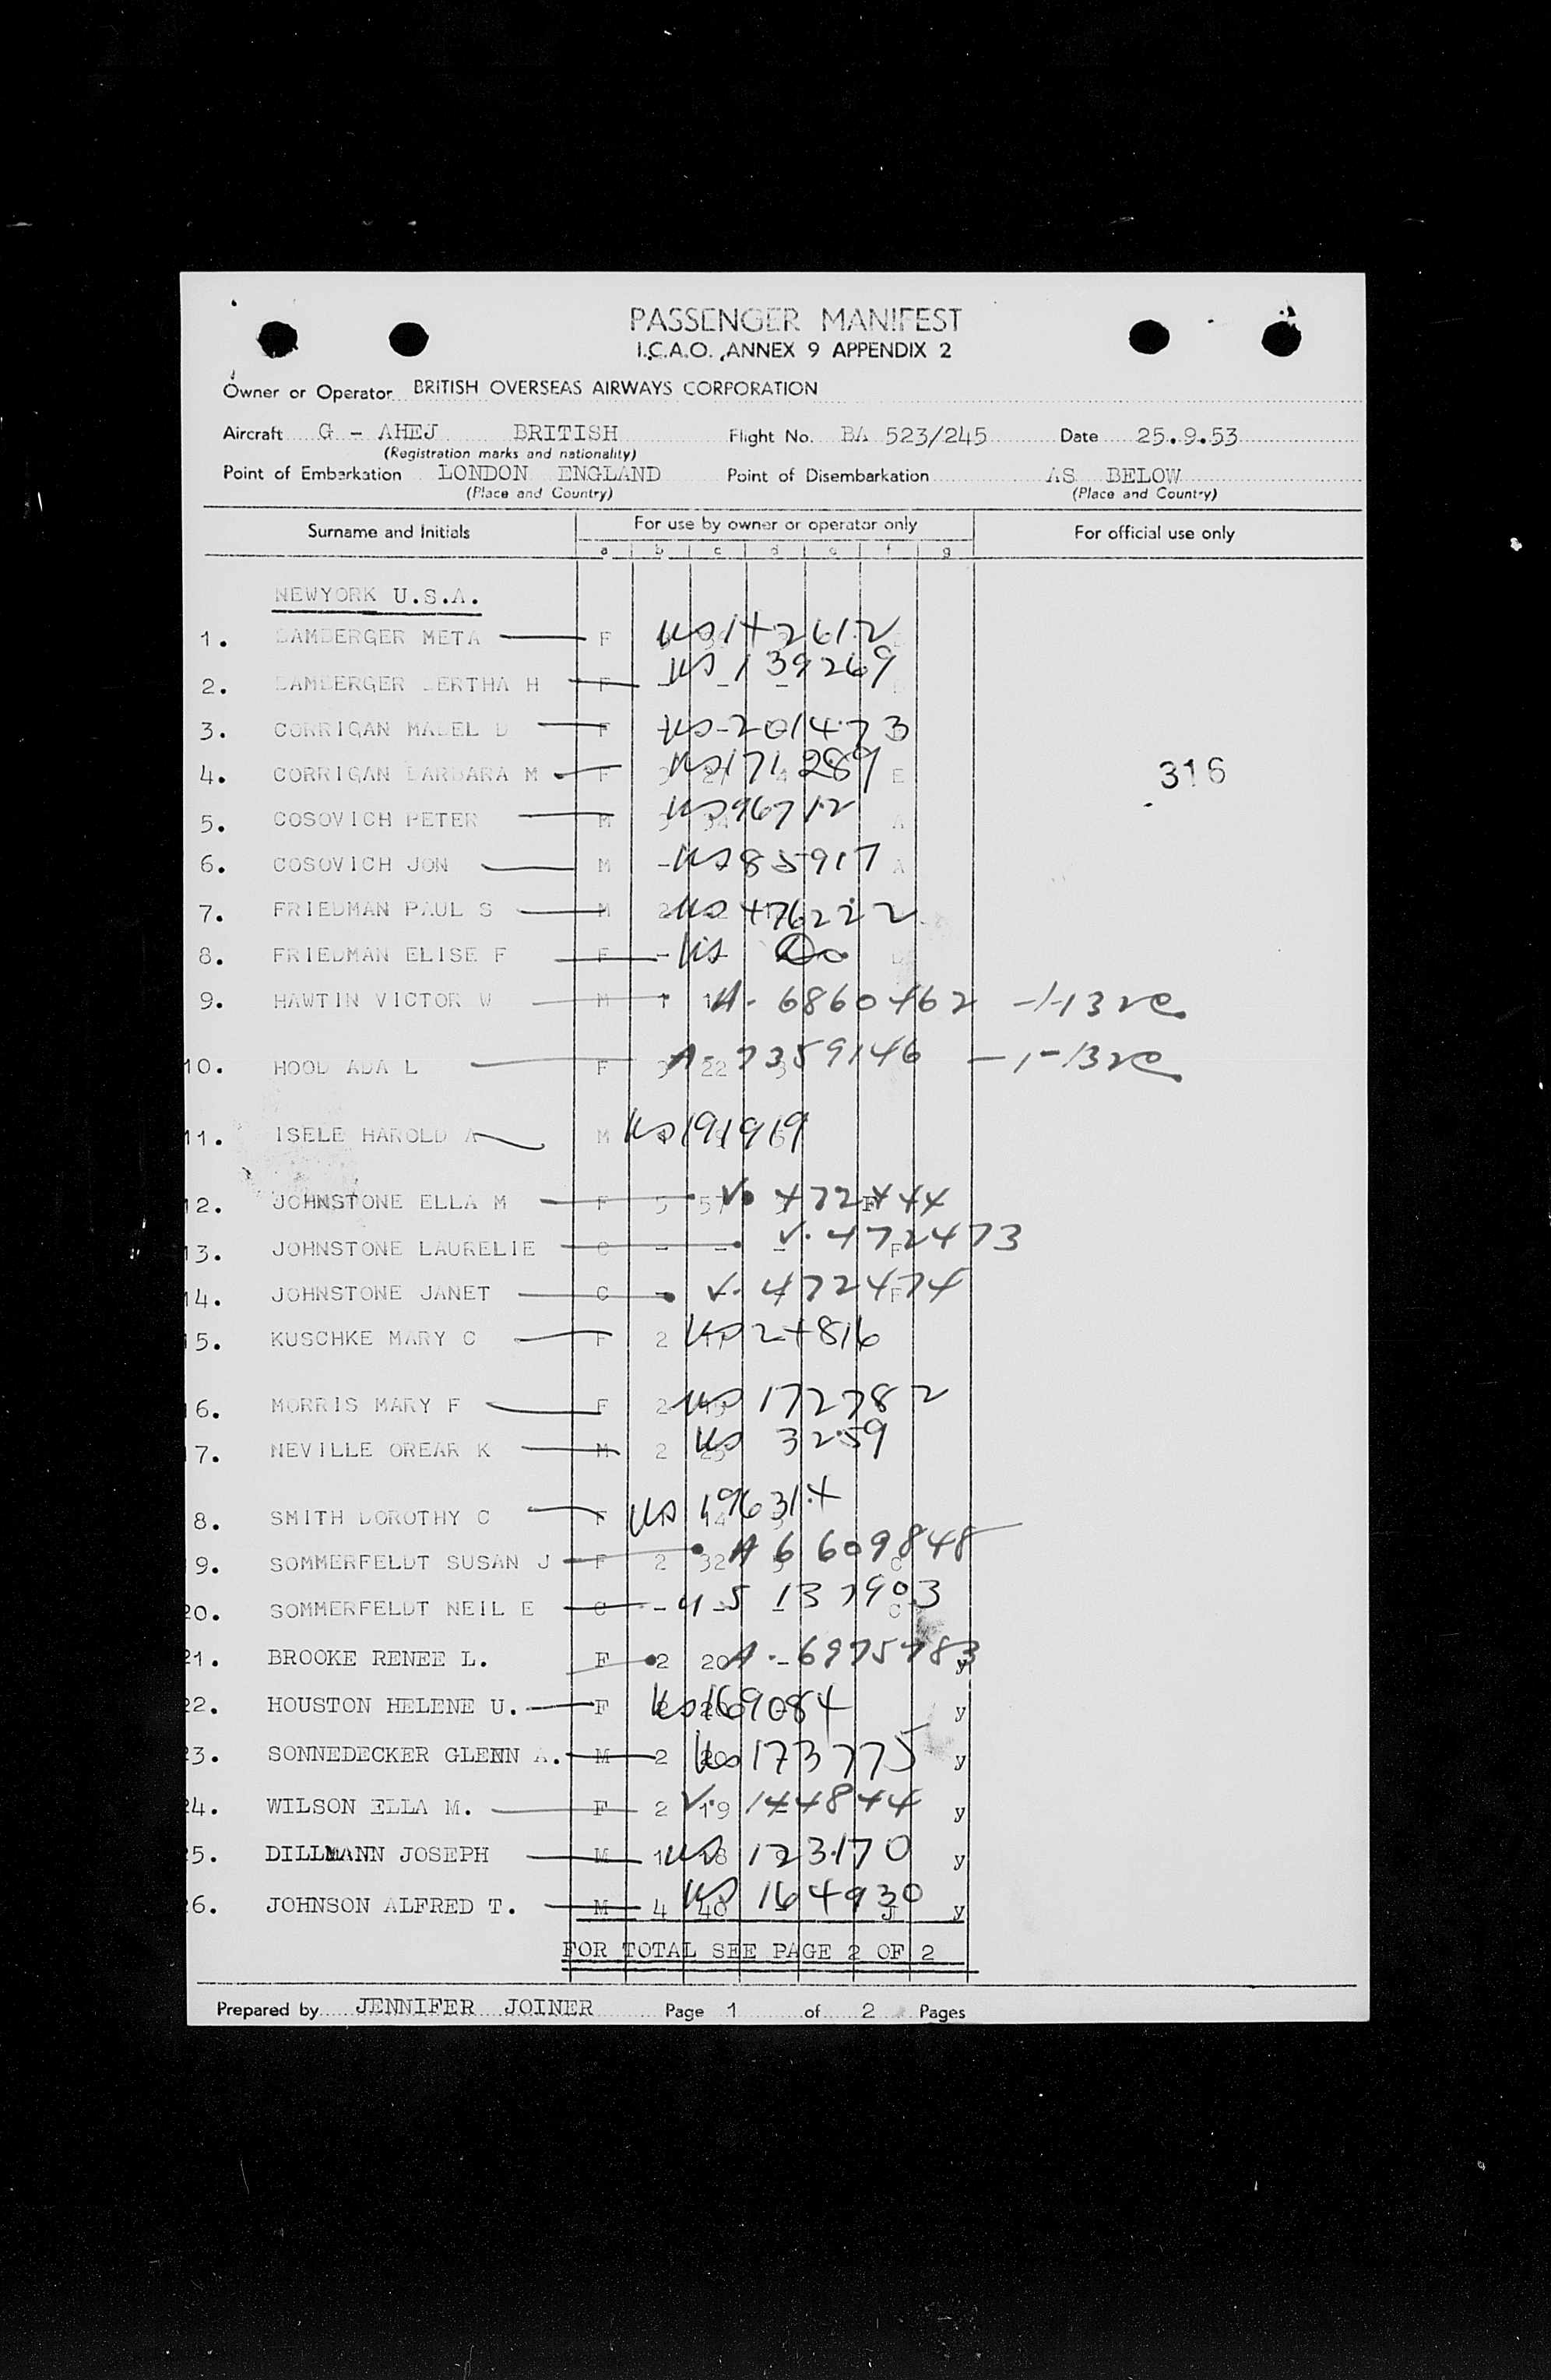 PASSENGER MANIFEST
I.C.A.O. ANNEX 9 APPENDIX 2
Owner or Operator BRITISH OVERSEAS AIRWAYS CORPORATION
Aircraft G - AHEJ BRITISH Flight No. BA 523/245 Date 25.9.53
(Registration marks and nationality)
Point of Embarkation LONDON ENGLAND Point of Disembarkation AS BELOW
(Place and Country) (Place and Country)
Surname and Initials For use by owner or operator only For official use only
a b c d e f g
NEWYORK U.S.A.
1. BAMBERGER META F
2. BAMBERGER BERTHA H F US 139269
3. CORRIGAN MABEL D F
4. CORRIGAN BARBARA M F US 171289 E
316
5. COSOVICH PETER M US 96712 A
6. COSOVICH JON M - US 85917 A
7. FRIEDMAN PAUL S M 2 US 476222
8. FRIEDMAN ELISE F F - US Do
9. HAWTIN VICTOR W M 1 A- 6860462
10. HOOD ADA L F 22 A- 7359146
11. ISELE HAROLD A M US 191919
12. JOHNSTONE ELLA M F 5 57 V. 472444 F
13. JOHNSTONE LAURELIE C - - - V. 472473 F
14. JOHNSTONE JANET C - V. 472474 F
15. KUSCHKE MARY C F 2 US 24816
16. MORRIS MARY F F 2 US 172782
17. NEVILLE OREAR K M 2 US 3259
8. SMITH DOROTHY C F 14 US 196314
9. SOMMERFELDT SUSAN J F 2 32 A 6609848 C
20. SOMMERFELDT NEIL E C - - - C
21. BROOKE RENEE L. F 2 20 - A- 6975783 y
22. HOUSTON HELENE U. F 2 US 169084 y
23. SONNEDECKER GLENN A. M 2 20 US 173775 y
24. WILSON ELLA M. F 2 19 V. 144844 y
25. DILLMANN JOSEPH M 1 18 US 123170 y
26. JOHNSON ALFRED T. M 4 40 US 164930 J y
FOR TOTAL SEE PAGE 2 OF 2
Prepared by JENNIFER JOINER Page 1 of 2 Pages